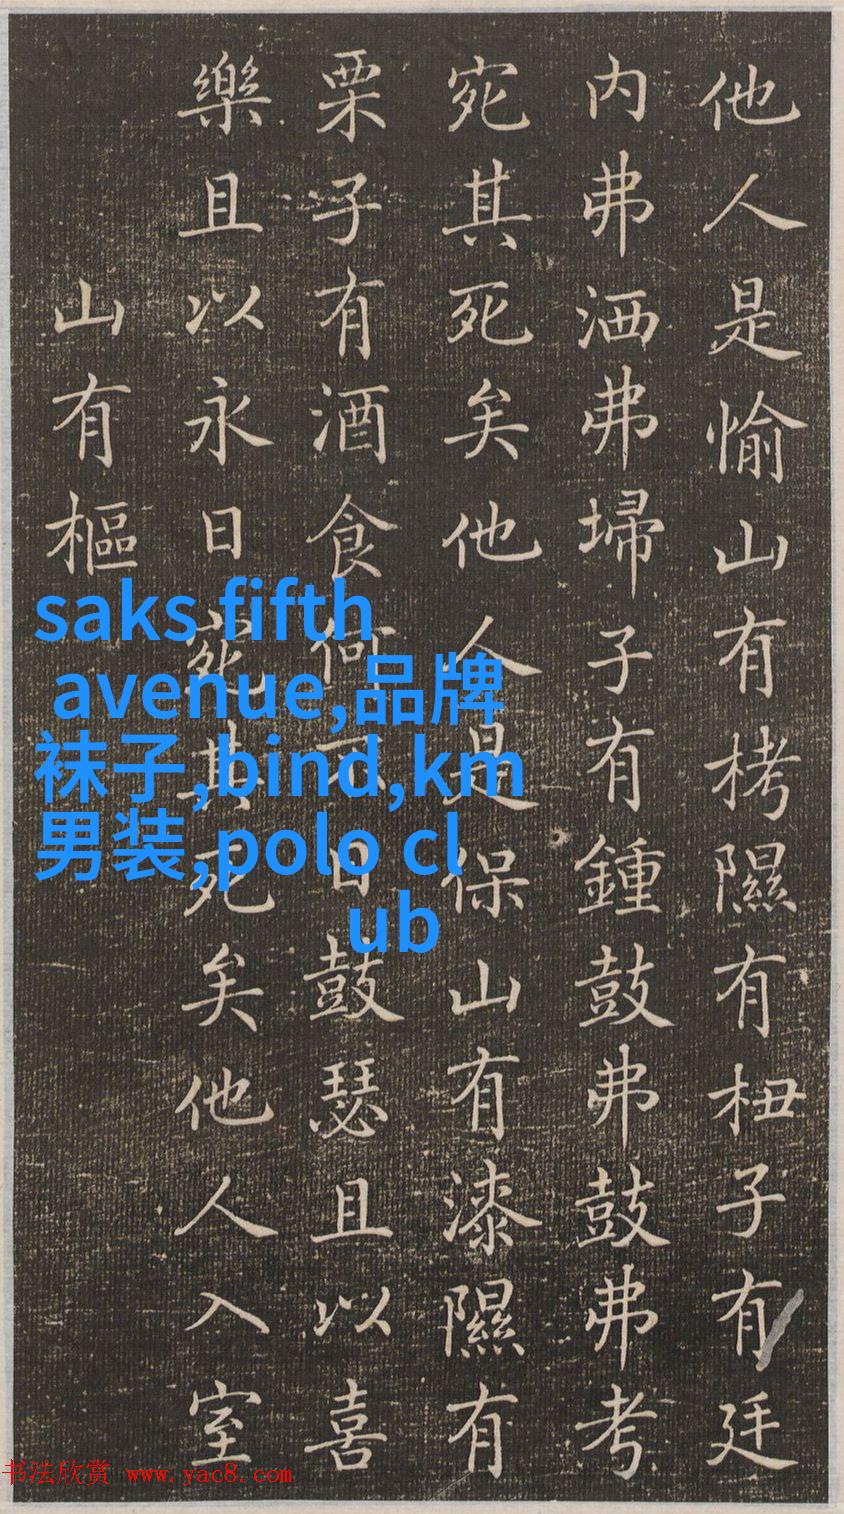 他人是愉山有栲隰有杻子有廷
内弗洒弗埽子有鍾鼓弗鼓弗考
宛其死矣他人是保山有漆隰有
栗子有酒食何不日鼓瑟且以喜
樂且以永日宛其死矣他人入室
山有樞
saks fifth
avenue,品牌
袜子,bind,km
男装,polo cl
ub
书法欣赏 www.yac8.com